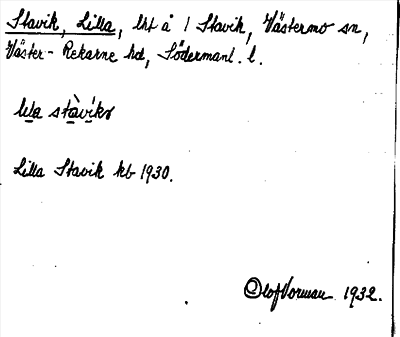 Stavik, Lilla, lht å 1 Stavik, Västermo sn,
Väster-Rekarne hd, Södermanl. l.
lila stàvíkɘ
Lilla Stavik kb 1930.
Olof Vorman 1932.